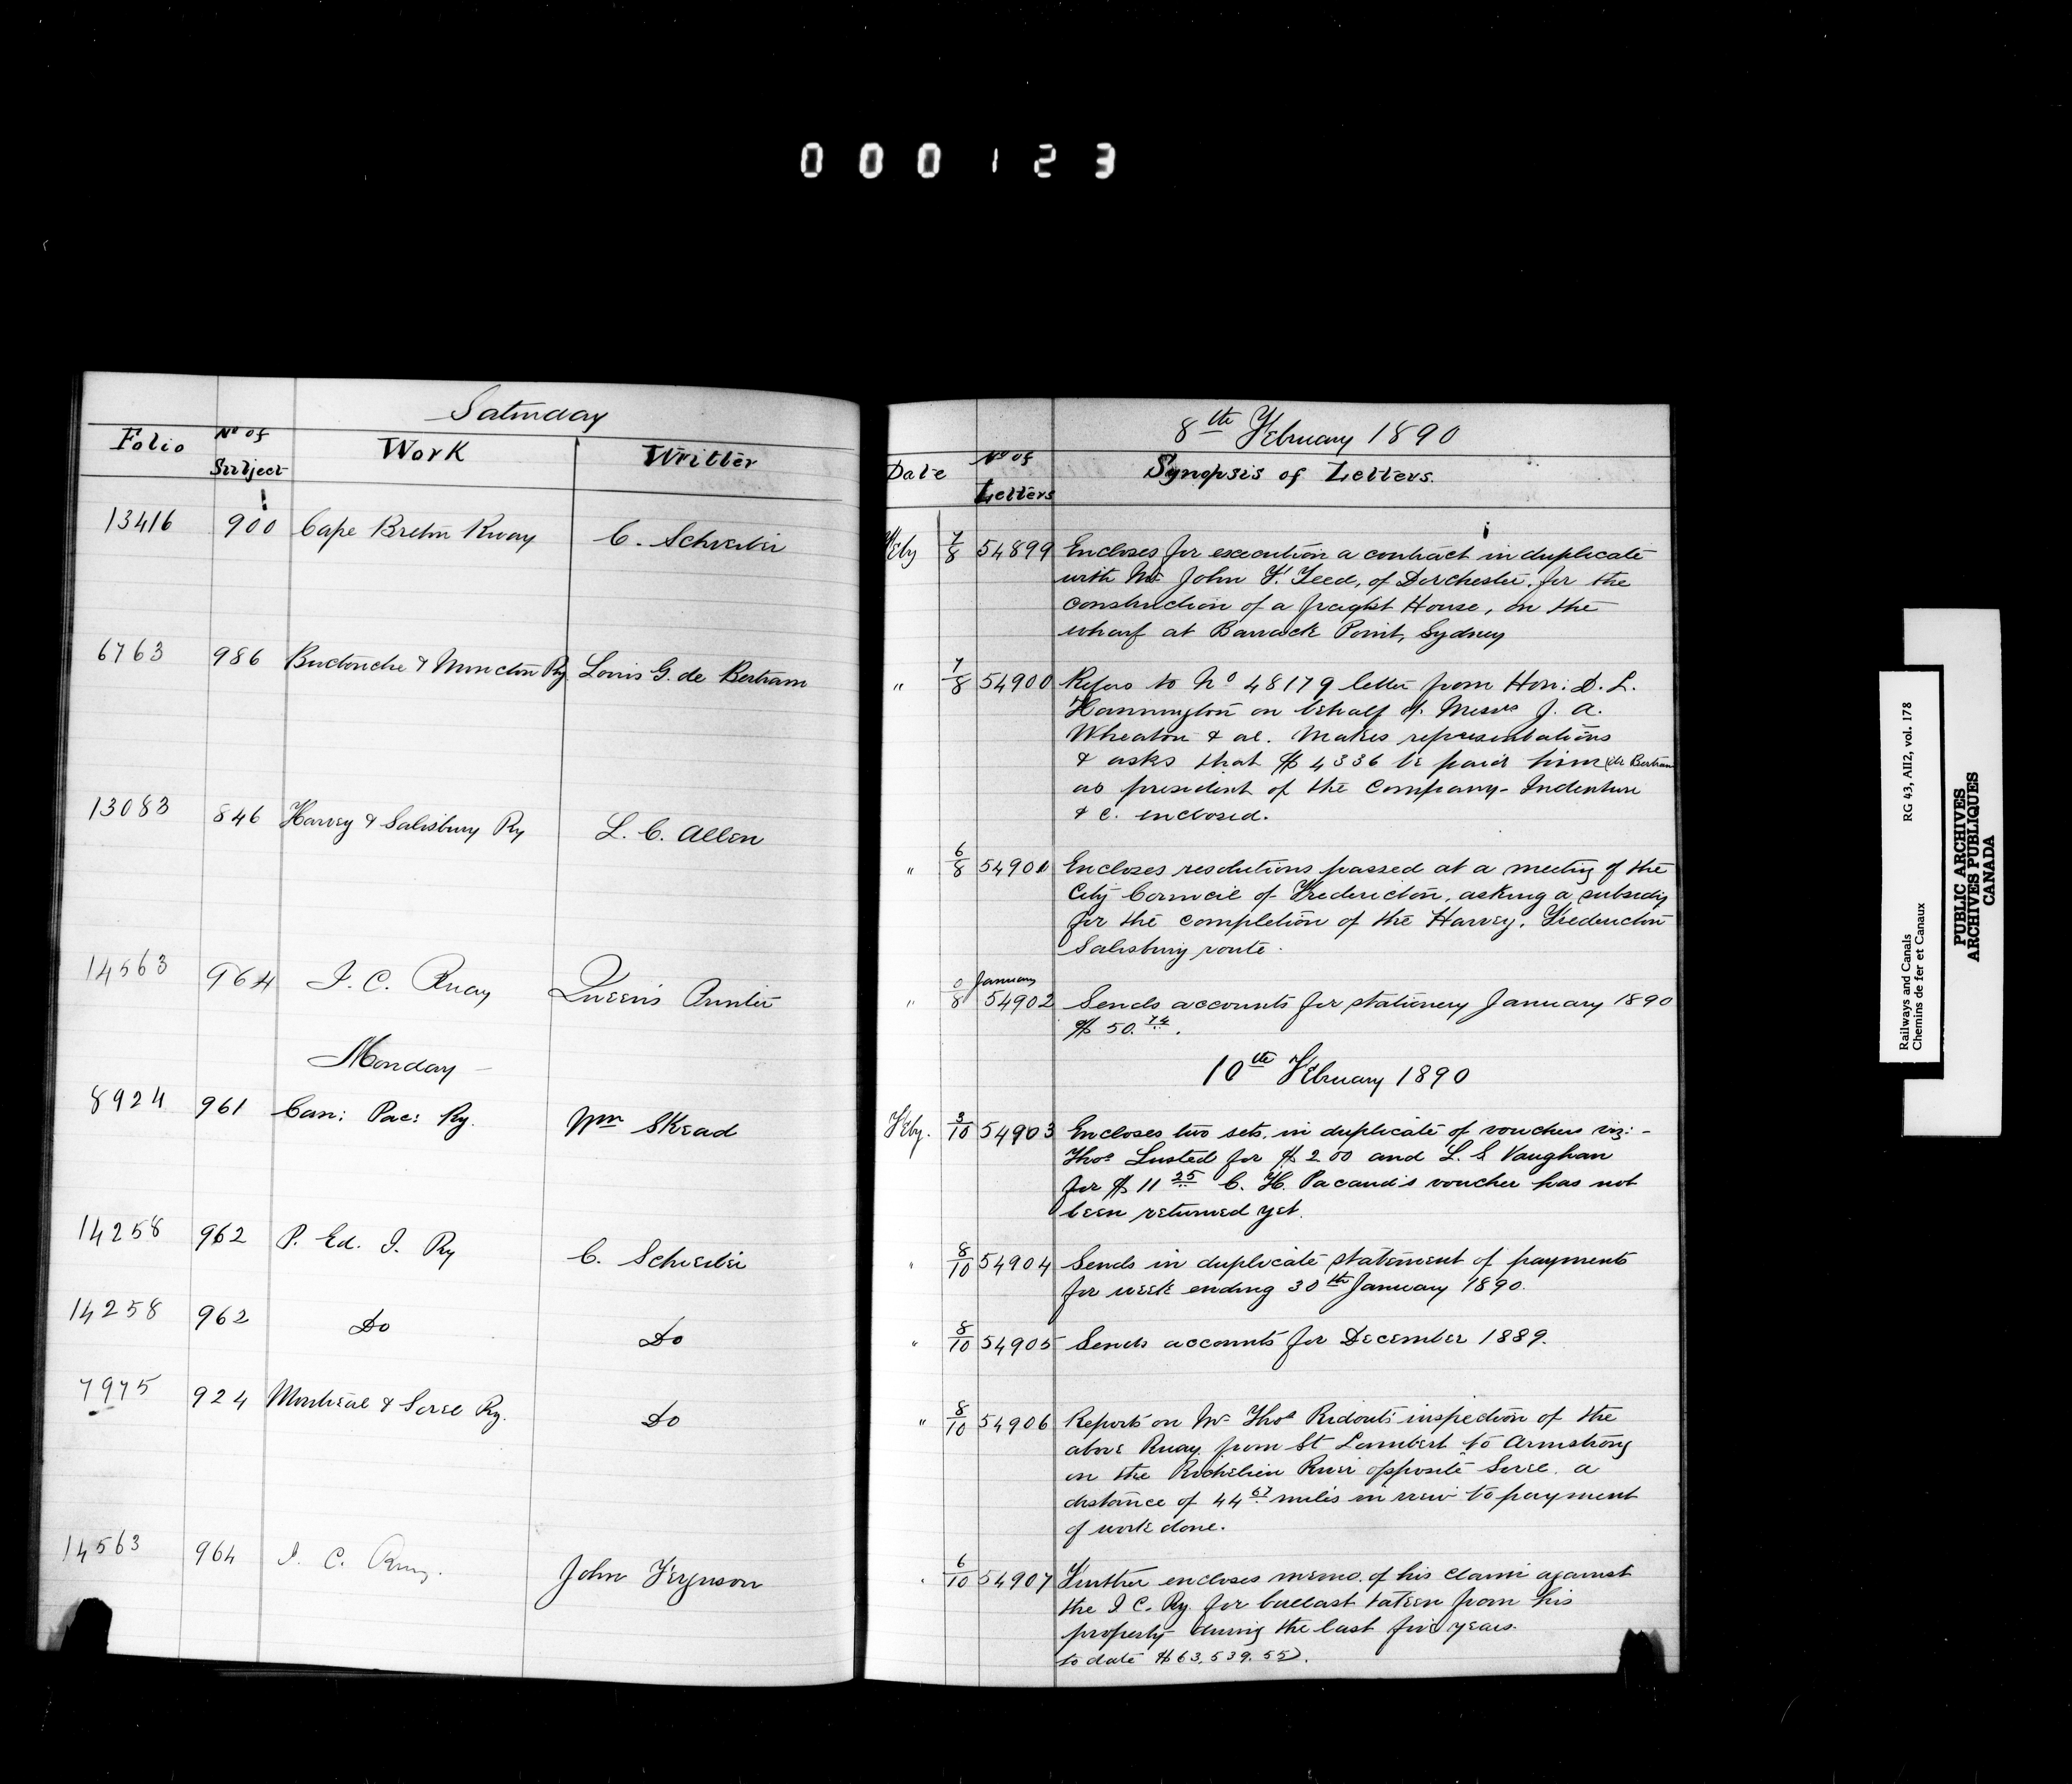 000123
Saturday
Folio
No of Subject
Work
Writter
13416 900 Cape Breton Rway C. Schreiber
6763 986 Buctouche & Moncton Ry Louis G. de Bertram
13083 846 Harvey & Salisbury Ry L. C. Allen
14563 964 I. C. Rway Queen's Printer
Monday
8924 961 Can: Pac: Ry. Wm Skead
14258 962 P. Ed. I. Ry C. Schreiber
14258 962 Do Do
7975 924 Montreal & Sorel Ry. Do
14563 964 I. C. Rway. John Ferguson
8th February 1890
Date
No of Letters
Synopsis of Letters.
Feby 7/8 54899 Encloses for execution a contract in duplicate
with Mr John F. Teed, of Dorchester, for the
construction of a freight House, on the
wharf at Barrack Point, Sydney
" 7/8 54900 Refers to No 48179 letter from Hon: D. L.
Hannington on behalf of Messrs J. A.
Wheaton & al. Makes representations
& asks that $4336 be paid him (de Bertram
as president of the Company- Indenture
& c. enclosed.
" 6/8 54901 Encloses resolutions passed at a meeting of the
City Council of Fredericton, asking a subsidy
for the completion of the Harvey, Fredericton
Salisbury route.
January
" 0/8 54902 Sends accounts for stationery January 1890
$50.74.
10th February 1890
Feby. 3/10 54903 Encloses two sets, in duplicate of vouchers viz:-
Thos Lusted for $200 and L. S Vaughan
for $11 25 C. H. Pacaud's voucher has not
been returned yet.
" 8/10 54904 Sends in duplicate statement of payments
for week ending 30th January 1890.
" 8/10 54905 Sends accounts for December 1889.
" 8/10 54906 Reports on Mr Thos Ridout's inspection of the
above Rway from St Lambert to Armstrong
on the Richelieu River opposite Sorel. a
distance of 44 67 miles in view to payment
of work done.
" 6/10 54907 Further encloses memo. of his claim against
the I C. Ry. for ballast taken from his
property during the last five years.
to date $63,539.55).
Railways and Canals RG 43, AII2, vol. 178
Chemins de fer et Canaux
PUBLIC ARCHIVES
ARCHIVES PUBLIQUES
CANADA